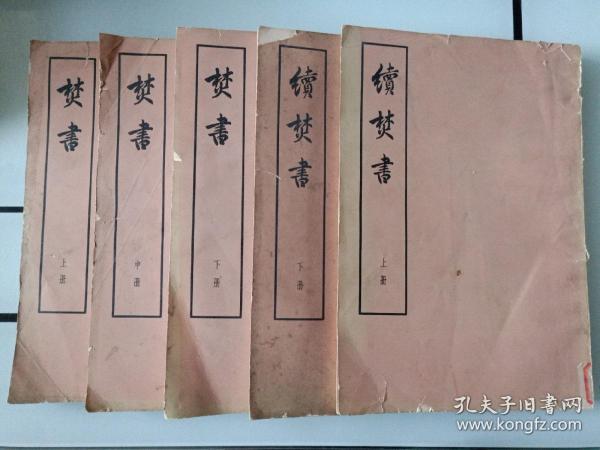 焚書
上册
焚書
中册
焚書
下册
續焚書
下册
續焚書
上册
孔夫子旧書网
www.kongfz.com